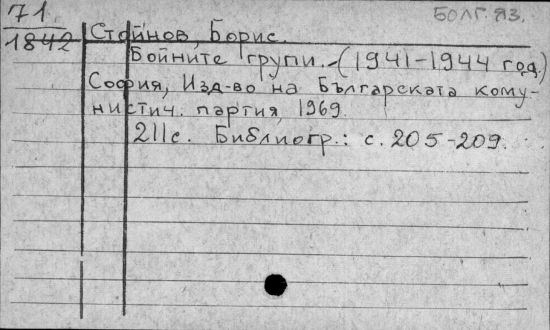 71 БОЛГ. ЯЗ.
1842 Стойнов, Борис.
Бойните групи. - (1941-1944 год.)
София, Изд-во на Българската кому-
нистич. партия, 1969.
211 с. Библиогр.: с. 205-209.